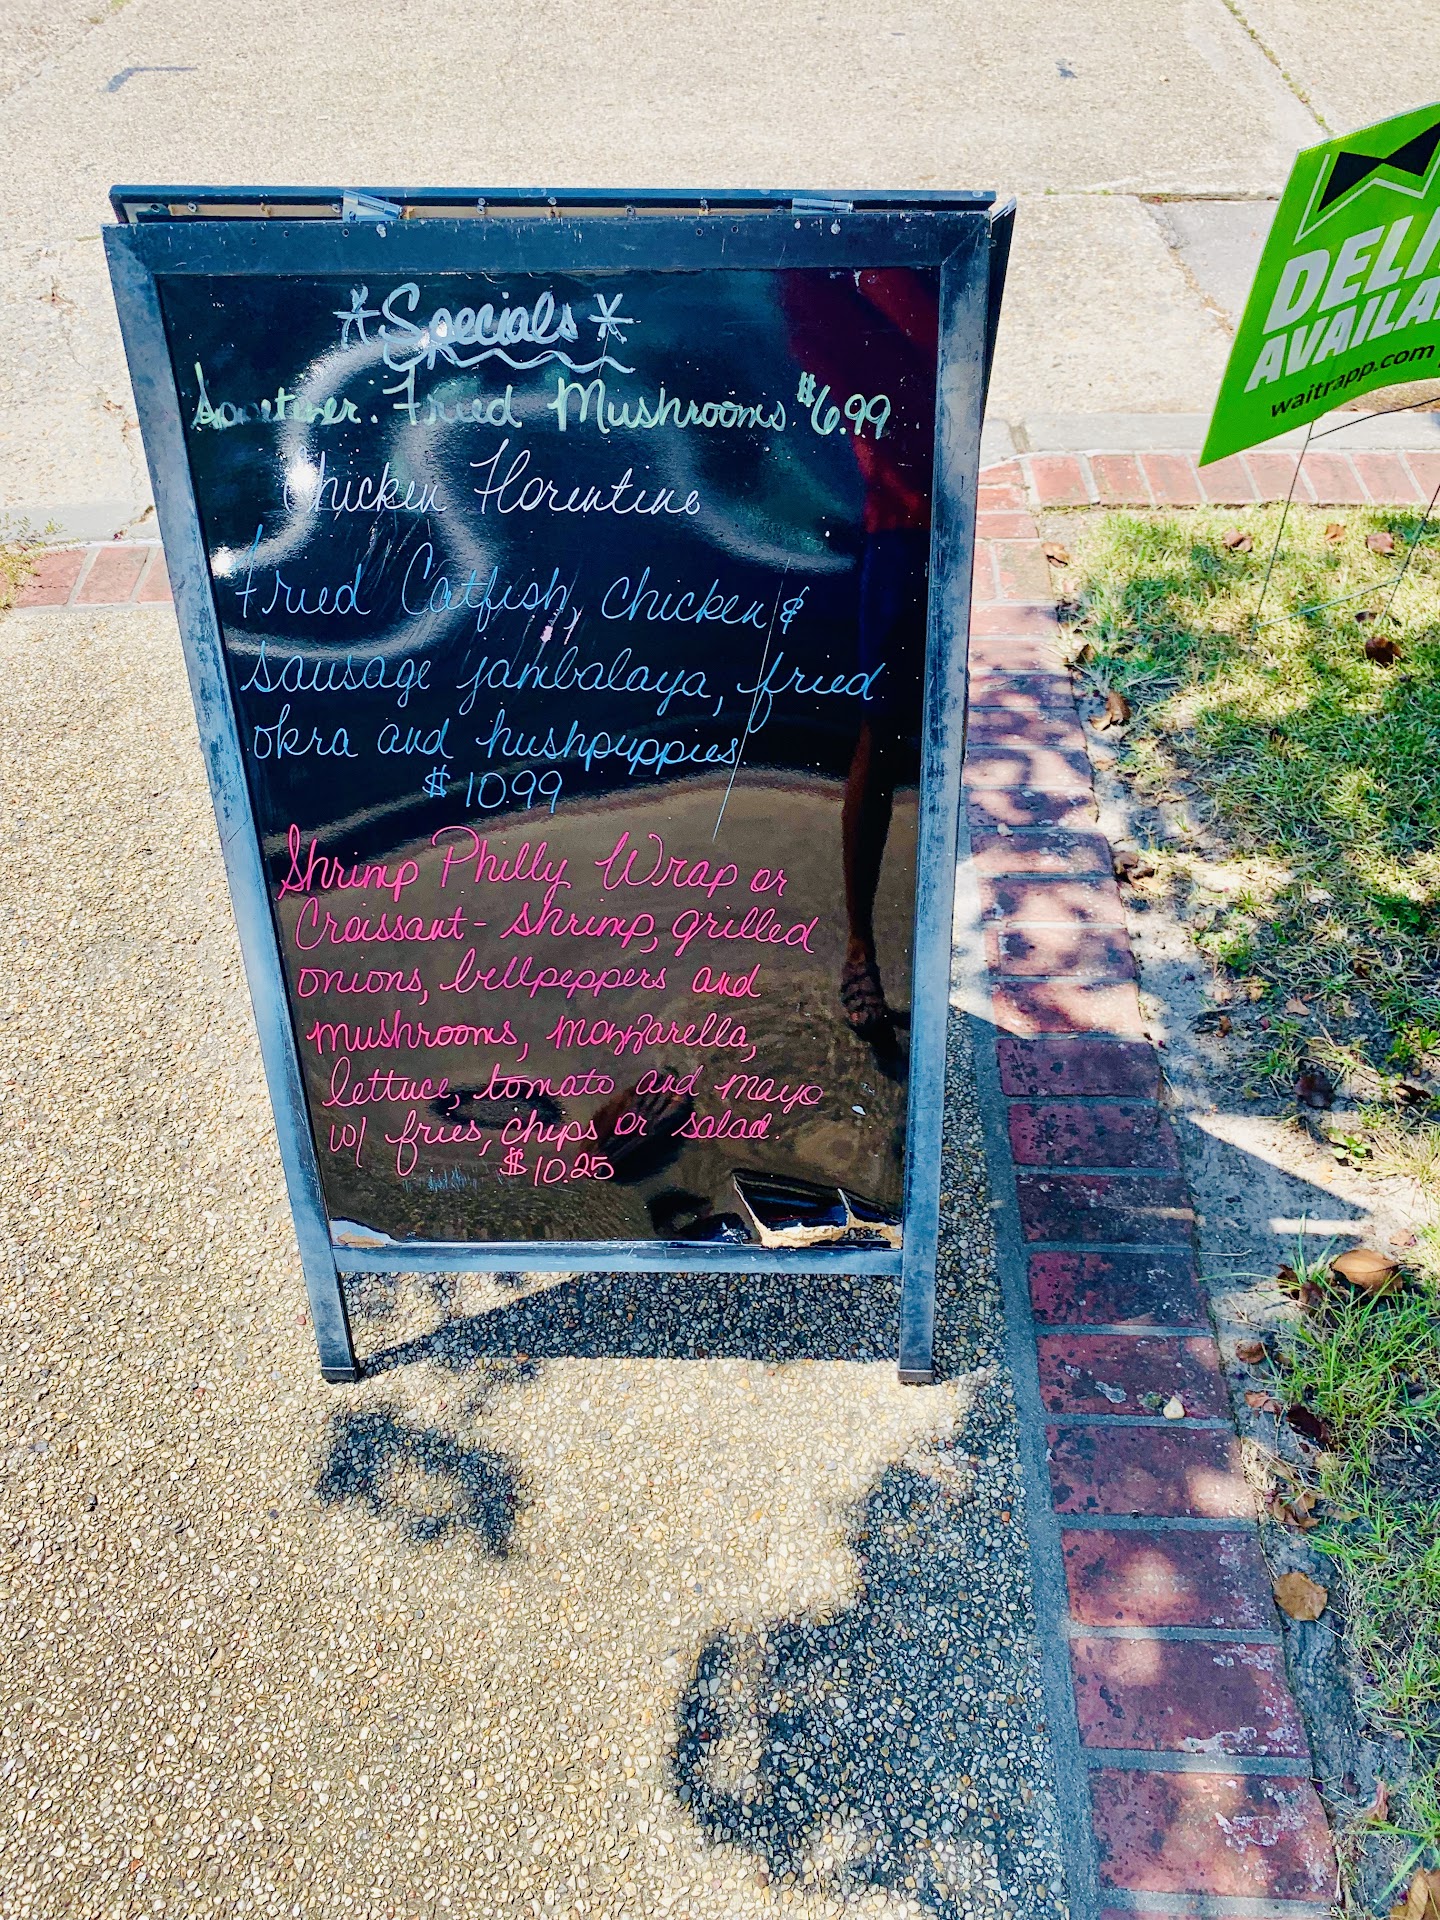 *Specials*
Fried Mushrooms $6.99
Chicken Florentine
Fried Catfish, chicken &
sausage jambalaya, fried
okra and hushpuppies.
$10.99
Shrimp Philly Wrap or
Croissant - shrimp, grilled
onions, bellpeppers and
mushrooms, mozzarella,
lettuce, tomato and mayo
w/ fries, chips or salad.
$10.25
waitrapp.com